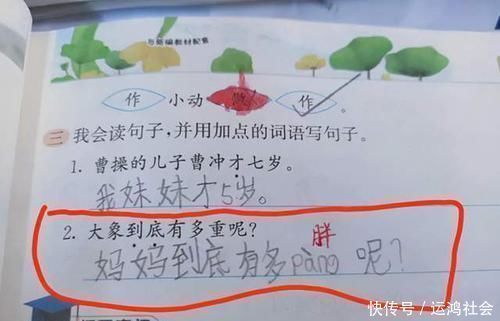 与新编教材配套
作 小动 做 作 。
三 我会读句子,并用加点的词语写句子。
1. 曹操的儿子曹冲才七岁。
我妹妹才5岁。
2. 大象到底有多重呢?
胖
妈妈到底有多pàng呢?
快传号/运鸿社会